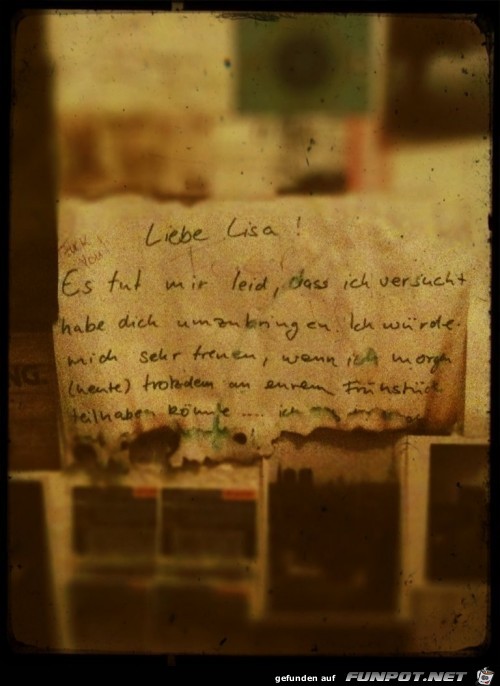 Liebe Lisa!
Fuck
You!
Es tut mir leid, dass ich versucht
habe dich umzubringen. Ich würde
mich sehr freuen, wenn ich morgen
(heute) trotzdem an eurem Frühstück
teilhaben könnte .... ich
gefunden auf FUNPOT.NET